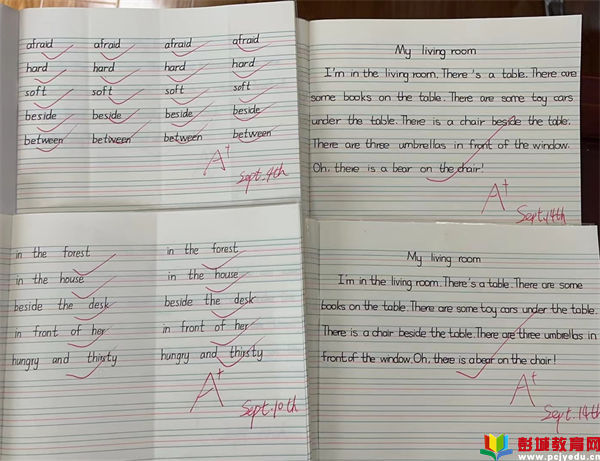 afraid afraid afraid afraid
hard hard hard hard
soft soft soft soft
beside beside beside beside
between between between between
A+
Sept.4th
My living room
I'm in the living room. There's a table. There are
some books on the table. There are some toy cars
under the table. There is a chair beside the table.
There are three umbrellas in front of the window.
Oh, there is a bear on the chair!
A+
Sept.14th
in the forest in the forest
in the house in the house
beside the desk beside the desk
in front of her in front of her
hungry and thirsty hungry and thirsty
A+
Sept.10th
My living room
I'm in the living room. There's a table. There are some
books on the table. There are some toy cars under the table.
There is a chair beside the table. There are three umbrellas in
front of the window. Oh, there is a bear on the chair!
A+
Sept.14th
彭城教育网
www.pcjyedu.cn